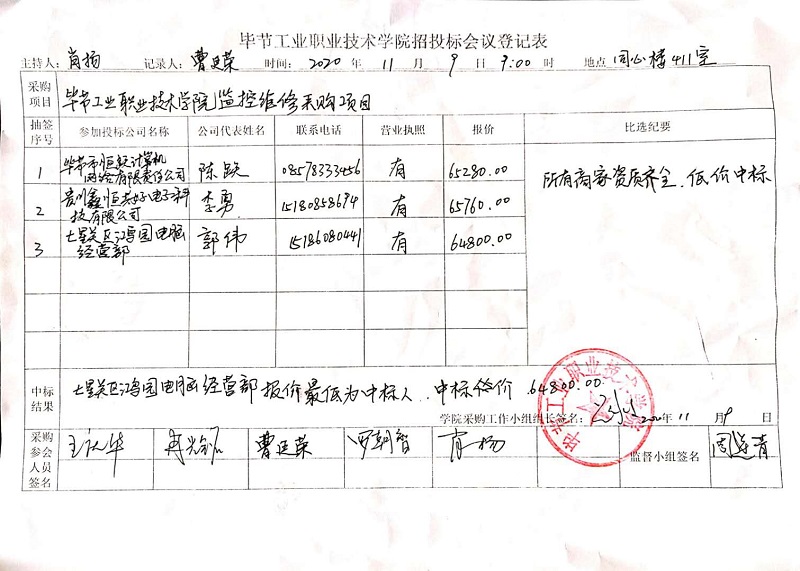 毕节工业职业技术学院招投标会议登记表
主持人：肖扬 记录人：曹廷荣 时间：2020 年 11 月 9 日 9:00 时 地点 同心楼411室
采购项目 毕节工业职业技术学院监控维修采购项目
抽签序号 参加投标公司名称 公司代表姓名 联系电话 营业执照 报价 比选纪要
1 毕节市恒毅计算机网络有限责任公司 陈跃 08578333456 有 65280.00 所有商家资质齐全、低价中标
2 贵州鑫恒友好电子科技有限公司 李勇 15180858694 有 65760.00
3 七星关区鸿图电脑经营部 郭伟 15186080441 有 64800.00
中标结果 七星关区鸿图电脑经营部报价最低为中标人、中标总价 64800.00
学院采购工作小组组长签名： 年 11 月 9 日
毕节工业职业技术学院
采购参会人员签名 曹廷荣 罗朝智 肖扬 监督小组签名